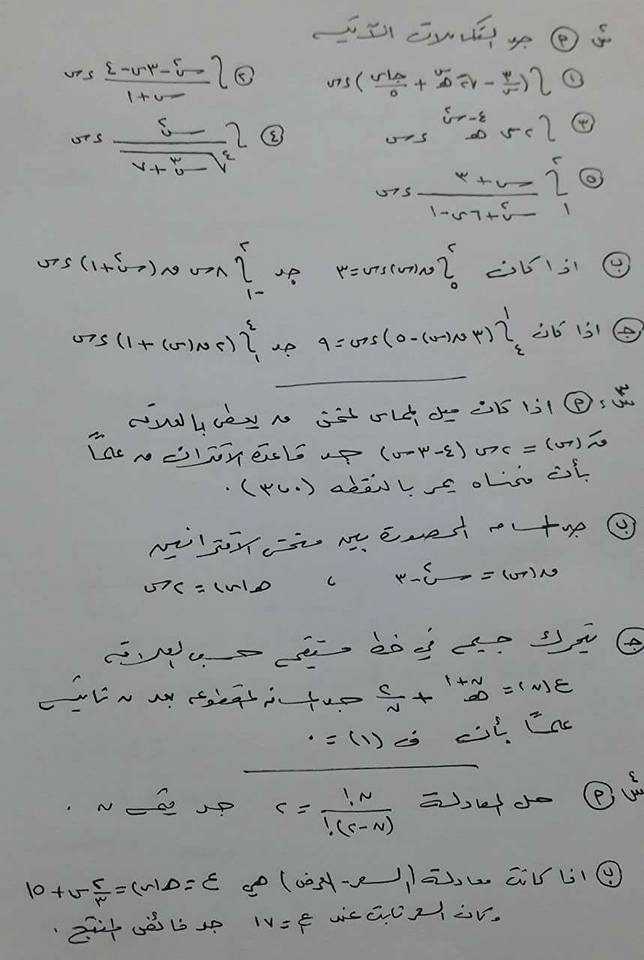 س٢ (P) جد التكاملات الآتية
(١) ∫ (٣/س − ٧ هـ^س + جاس/٥) ءس
(٢) ∫ (س٢ − ٣س − ٤)/(س + ١) ءس
(٣) ∫ ٢س هـ^(٤−س٢) ءس
(٤) ∫ س٢/⁴√(س٣ + ٧) ءس
(٥) ∫ من ١ إلى ٢ (س + ٣)/(س٢ + ٦س − ١) ءس
(ب) اذا كان ∫ من ٥ إلى ٢ ق(س) ءس = ٣ جد ∫ من −١ إلى ٢ ٨س ق(س٢ + ١) ءس
(جـ) اذا كان ∫ من ٤ إلى ١ (٣ق(س) − ٥) ءس = ٩ جد ∫ من ١ إلى ٤ (٢ق(س) + ١) ءس
س٣: (P) اذا كان ميل المماس لمنحنى ق يعطى بالعلاقة
قَ(س) = ٢س (٤ − ٣س) جد قاعدة الاقتران ق علماً
بأن منحناه يمر بالنقطة (٠، ٣).
(ب) جد المساحة المحصورة بين منحنى الاقترانين
ق(س) = س٢ − ٣ ، هـ(س) = ٢س
(جـ) يتحرك جسيم في خط مستقيم حسب العلاقة
ع(ن) = هـ^(ن+١) + ٢/ن جد المسافة المقطوعة بعد ن ثانية
علماً بأن ف(١) = ٠
س٤ (P) حل المعادلة ن!/(ن−٢)! = ٢ جد قيمة ن .
(ب) اذا كانت معادلة (السعر - العرض) هي ع = هـ(س) = ٢/٣ س + ١٥
وكان السعر ثابت عند ع = ١٧ جد فائض المنتج .